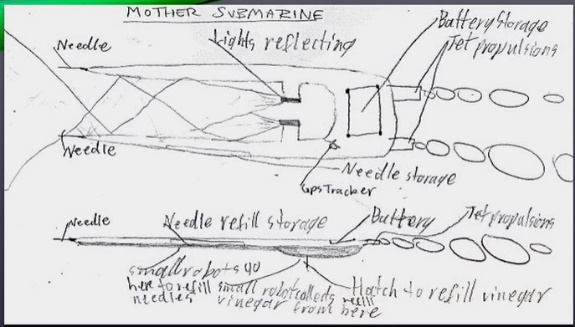 MOTHER SUBMARINE
Needle
Lights reflecting
Battery Storage
Jet propulsions
Needle
Needle storage
GPS Tracker
Needle
Needle refill storage
Battery
Jet propulsions
small robots go
here to refill
needles
small robot collects
vinegar from here
Hatch to refill vinegar